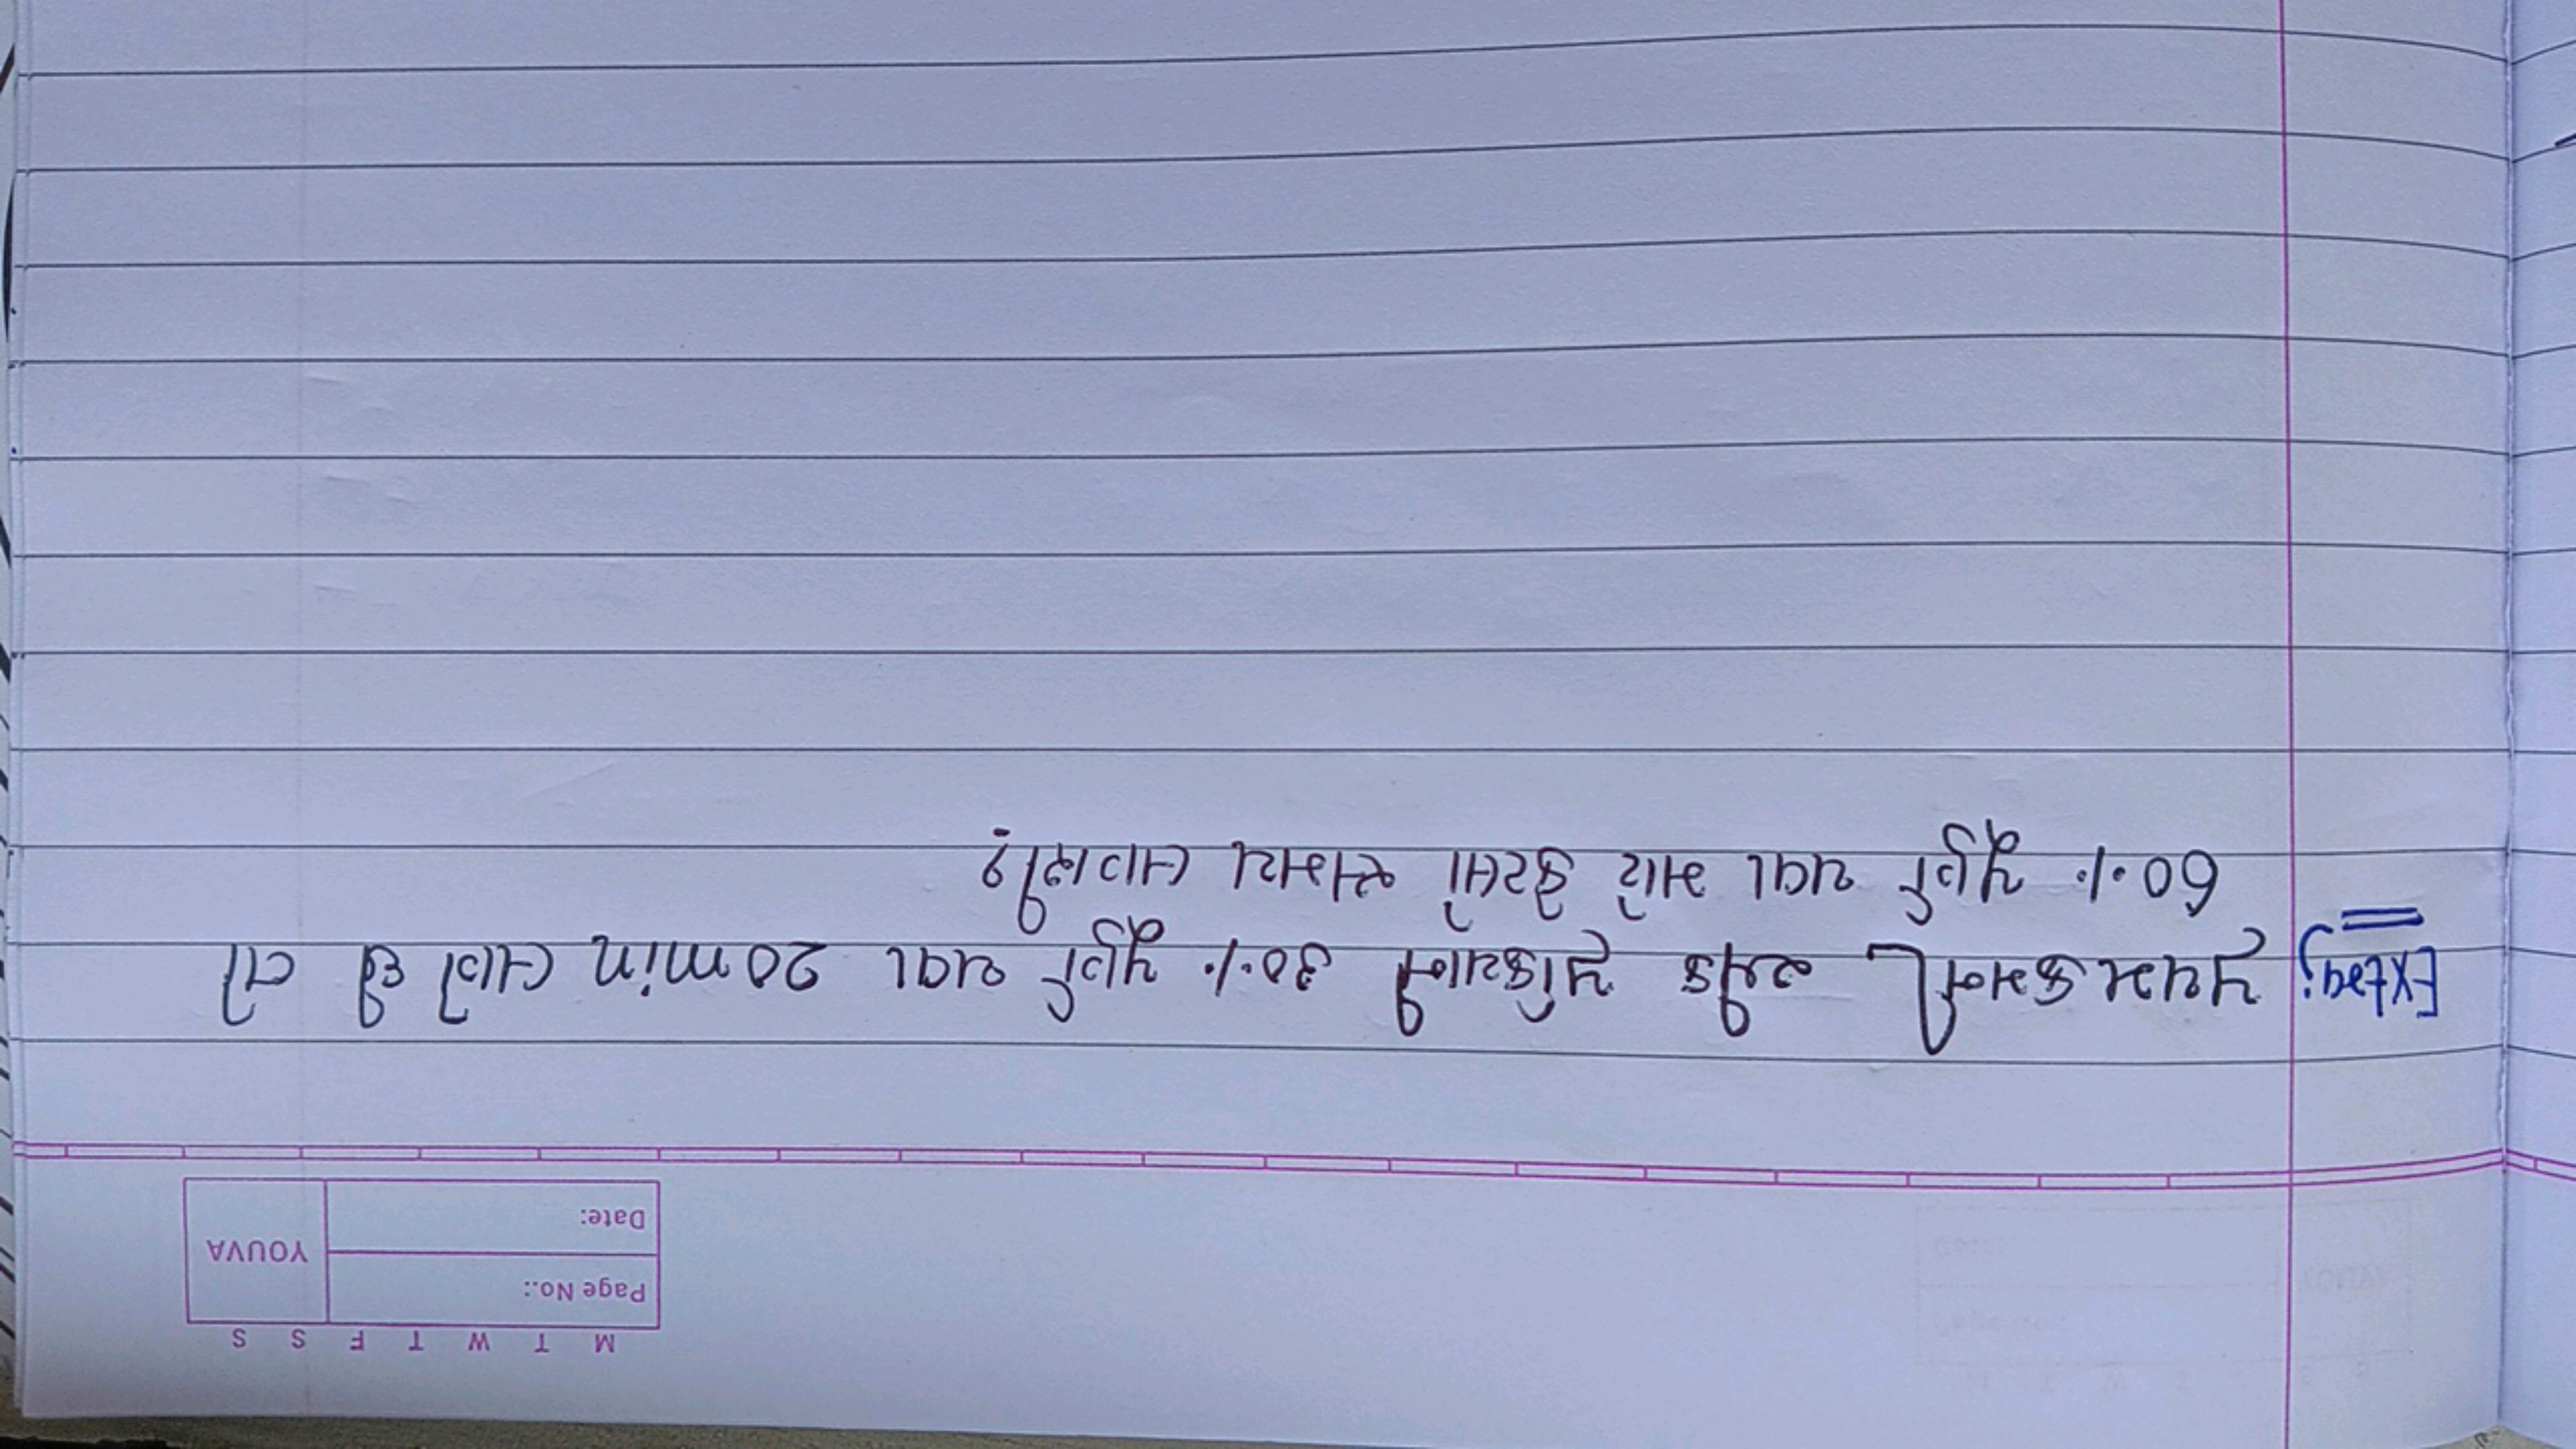 M T W T F S S
Page No.:
Date:
YOUVA
Extra: પ્રથમક્રમની એક પ્રક્રિયાની 30% પૂર્ણ થવા 20 min લાગે છે તો
60% પૂર્ણ થવા માટે કેટલો સમય લાગશે?